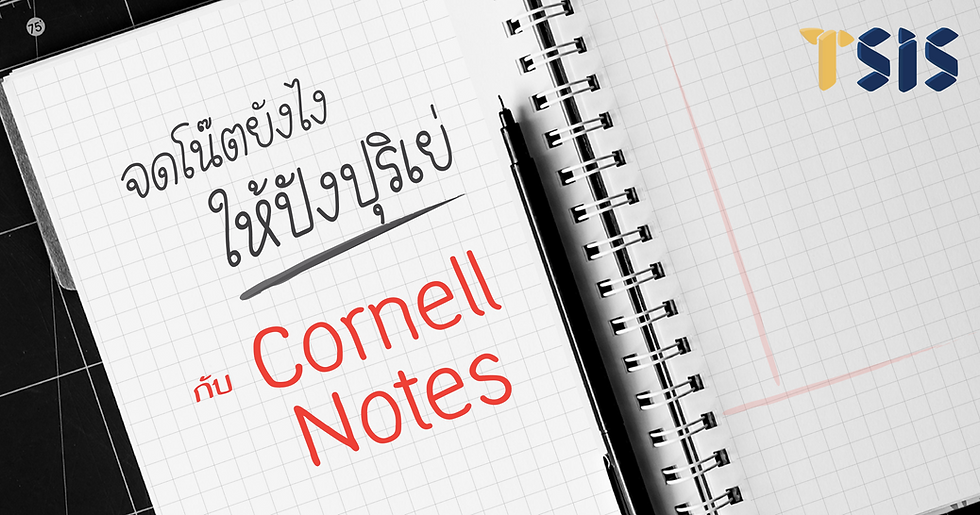 75
TSIS
จดโน๊ตยังไง
ให้ปังปุริเย่
กับ Cornell
Notes